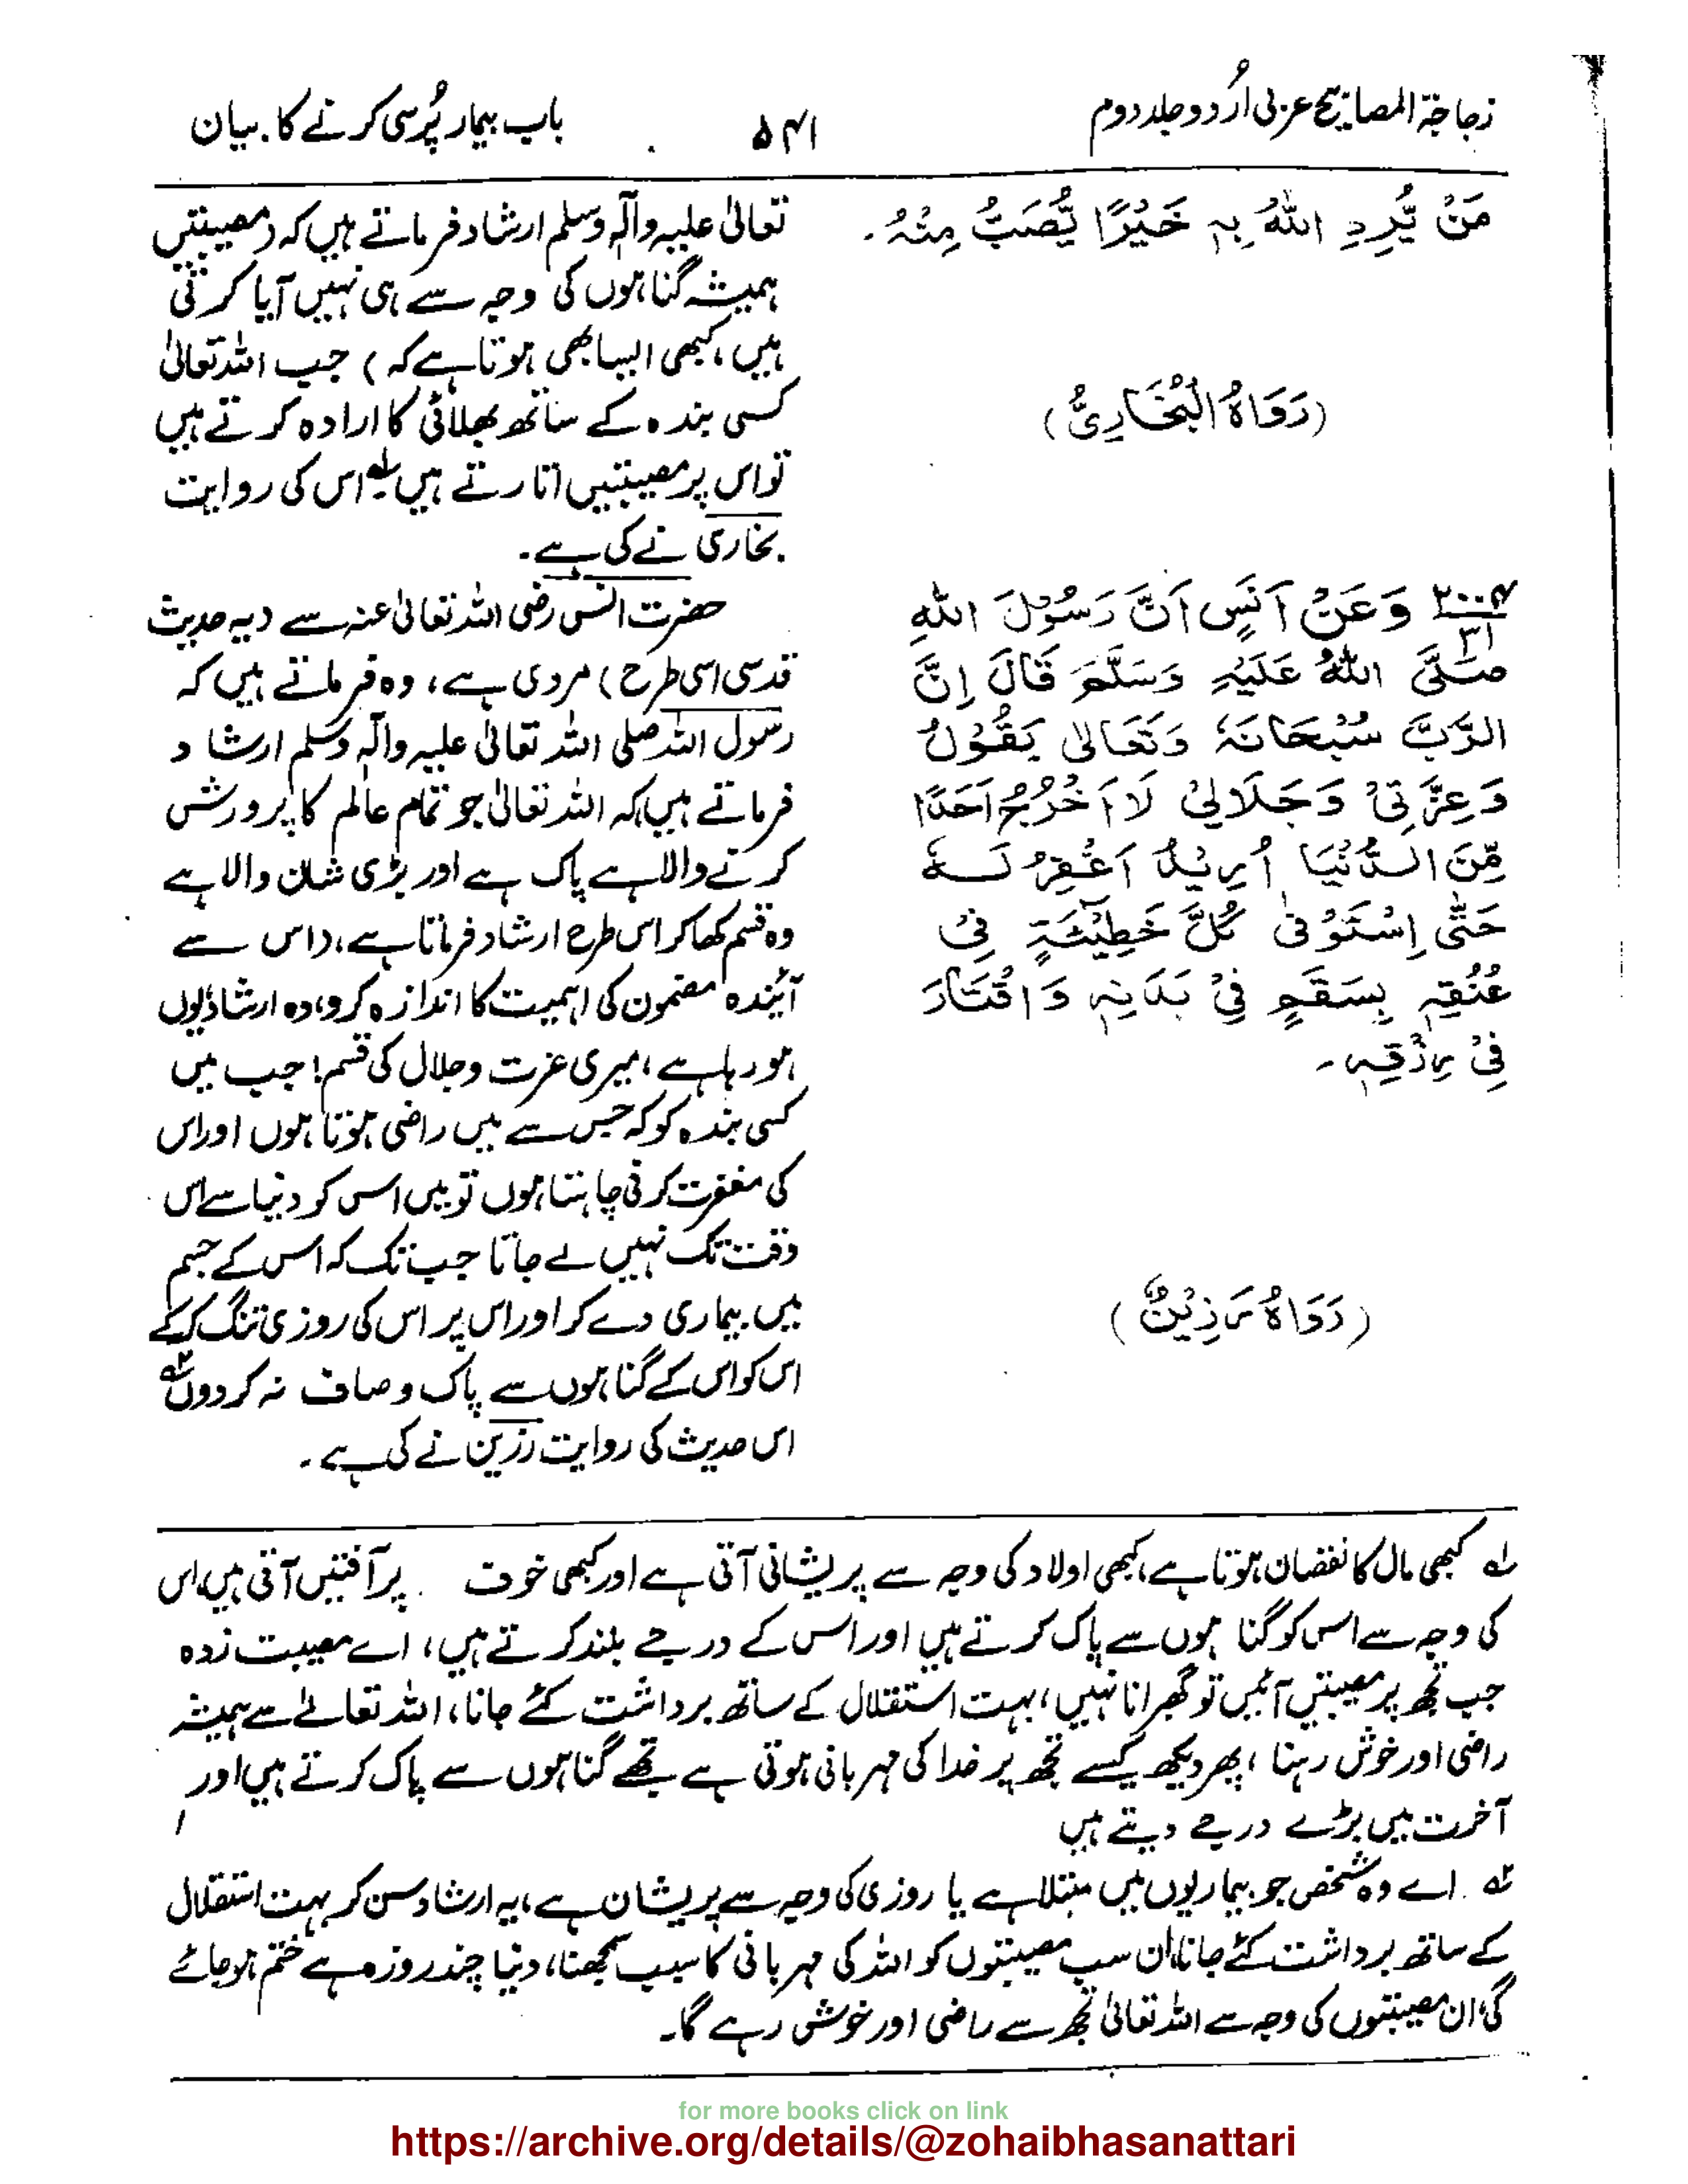 زجاجۃ المصابیح عربی اُردو جلد دوم
۵۴۱
باب بیمار پُرسی کرنے کا بیان
مَنْ یُّرِدِ اللہُ بِہٖ خَیْرًا یُّصَبُ مِنْہُ۔
(رَوَاہُ الْبُخَارِیُّ)
تعالیٰ علیہ وآلہٖ وسلم ارشاد فرماتے ہیں کہ (مصیبتیں
ہمیشہ گناہوں کی وجہ سے ہی نہیں آیا کرتی
ہیں، کبھی ایسا بھی ہوتا ہے کہ) جب اللہ تعالیٰ
کسی بندہ کے ساتھ بھلائی کا ارادہ کرتے ہیں
تو اس پر مصیبتیں اتارتے ہیں لہ اس کی روایت
بخاری نے کی ہے۔
۲۰۰۴
۳۱
وَعَنْ اَنَسٍ اَنَّ رَسُوْلَ اللہِ
صَلَّی اللہُ عَلَیْہِ وَسَلَّمَ قَالَ اِنَّ
الرَّبَّ سُبْحَانَہٗ وَتَعَالٰی یَقُوْلُ
وَعِزَّتِیْ وَجَلَالِیْ لَا اُخْرِجُ اَحَدًا
مِّنَ الدُّنْیَا اُرِیْدُ اَغْفِرُ لَہٗ
حَتّٰی اسْتَوْفٰی کُلَّ خَطِیْئَۃٍ فِیْ
عُنُقِہٖ بِسَقَمٍ فِیْ بَدَنِہٖ وَاِقْتَارَ
فِیْ رِزْقِہٖ۔
(رَوَاہُ رَزِیْنٌ)
حضرت انس رضی اللہ تعالیٰ عنہ سے (یہ حدیث
قدسی اسی طرح) مروی ہے، وہ فرماتے ہیں کہ
رسول اللہ صلی اللہ تعالیٰ علیہ وآلہٖ وسلم ارشاد
فرماتے ہیں کہ اللہ تعالیٰ جو تمام عالم کا پرورش
کرنے والا ہے پاک ہے اور بڑی شان والا ہے
وہ قسم کھا کر اس طرح ارشاد فرماتا ہے، (اس سے
آئندہ مضمون کی اہمیت کا اندازہ کرو، وہ ارشاد یوں
ہو رہا ہے، میری عزت وجلال کی قسم! جب میں
کسی بندہ کو کہ جس سے میں راضی ہوتا ہوں اور اس
کی مغفرت کرنی چاہتا ہوں تو میں اس کو دنیا سے اس
وقت تک نہیں لے جاتا جب تک کہ اس کے جسم
میں بیماری دے کر اور اس پر اس کی روزی تنگ کر کے
اس کو اس کے گناہوں سے پاک و صاف نہ کر دوں ۲ہ
اس حدیث کی روایت رزین نے کی ہے۔
لہ کبھی مال کا نقصان ہوتا ہے، کبھی اولاد کی وجہ سے پریشانی آتی ہے اور کبھی خوف پر آفتیں آتی ہیں، اس
کی وجہ سے اس کو گناہوں سے پاک کرتے ہیں اور اس کے درجے بلند کرتے ہیں، اے مصیبت زدہ
جب تجھ پر مصیبتیں آئیں تو گھبرانا نہیں، بہت استقلال کے ساتھ برداشت کئے جانا، اللہ تعالےٰ سے ہمیشہ
راضی اور خوش رہنا، پھر دیکھ کیسے تجھ پر خدا کی مہربانی ہوتی ہے تجھے گناہوں سے پاک کرتے ہیں اور
آخرت میں بڑے درجے دیتے ہیں
۲ہ اے وہ شخص جو بیماریوں میں مبتلا ہے یا روزی کی وجہ سے پریشان ہے، یہ ارشاد سن کر بہت استقلال
کے ساتھ برداشت کئے جانا، ان سب مصیبتوں کو اللہ کی مہربانی کا سبب سمجھنا، دنیا چند روزہ ہے ختم ہو جائے
گی، ان مصیبتوں کی وجہ سے اللہ تعالیٰ تجھ سے راضی اور خوش رہے گا۔
for more books click on link
https://archive.org/details/@zohaibhasanattari